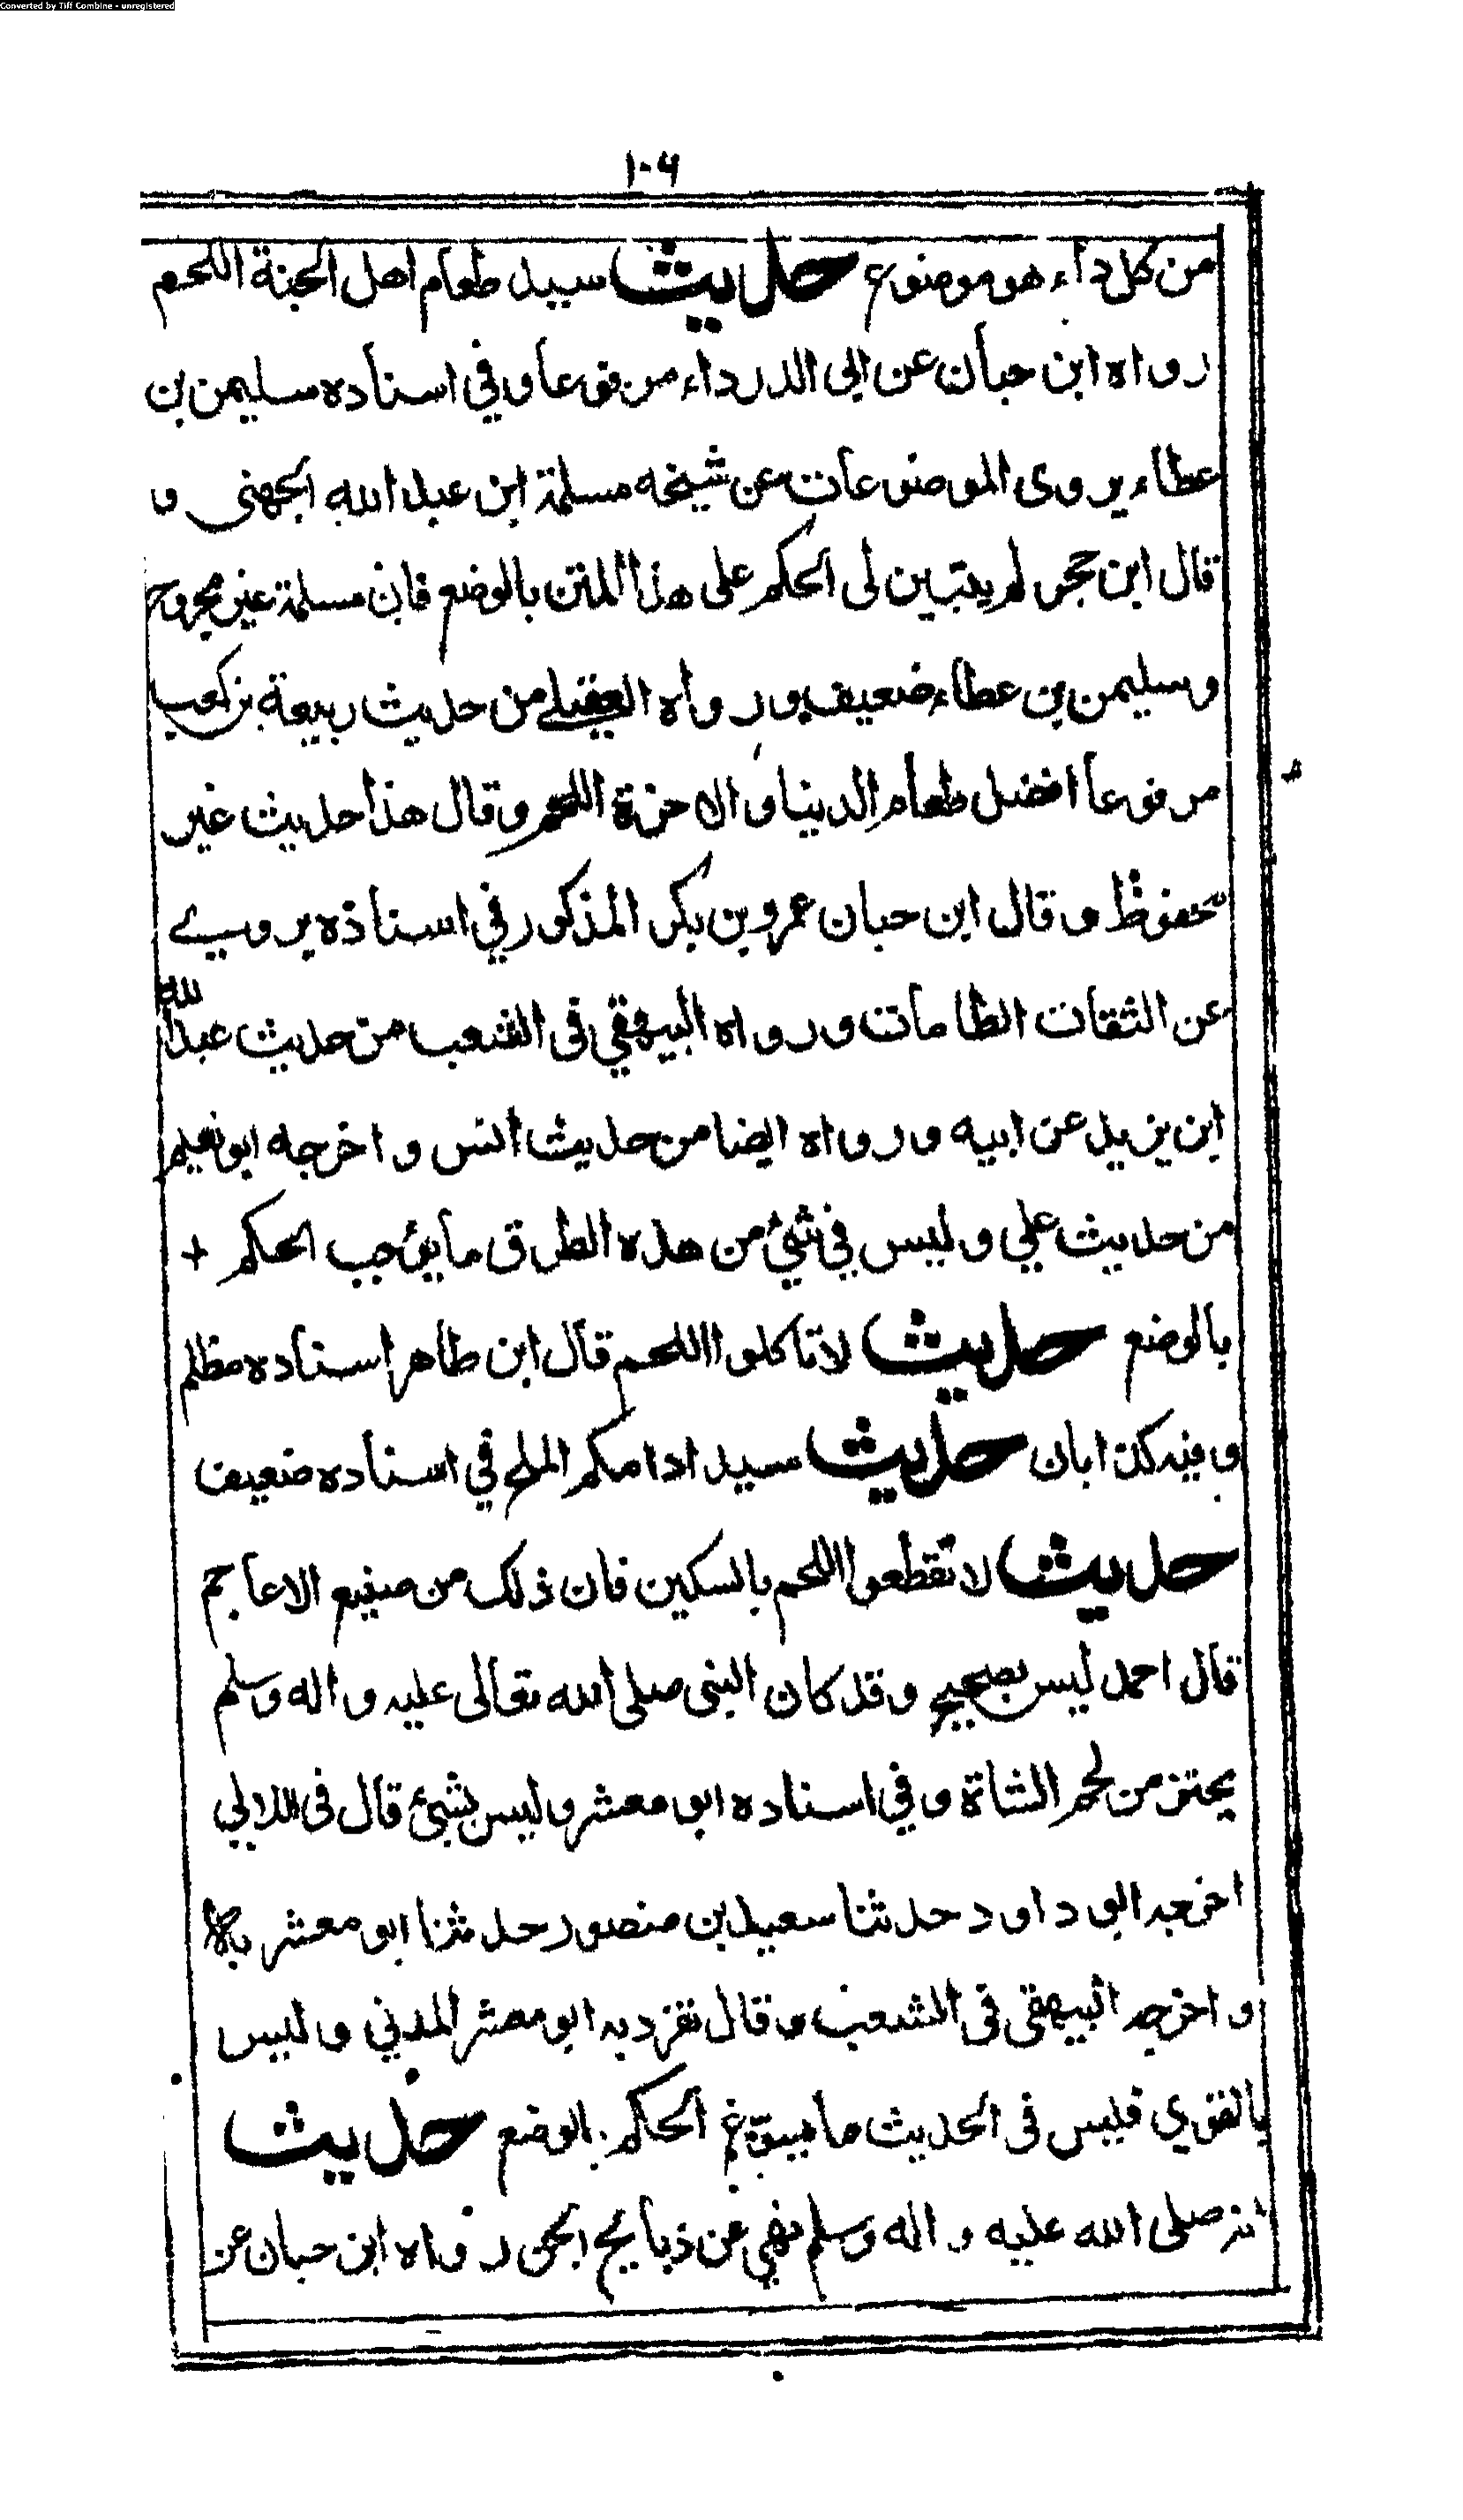 Converted by Tiff Combine - unregistered
١٠٦
من كل داء هو موضوع حديث سيد طعام اهل الجنة اللحم
رواه ابن حبان عن ابى الدرداء مرفوعا وفي اسناده سليمن بن
عطاء يروى الموضوعات عن شيخه مسلمة ابن عبد الله الجهنى و
قال ابن حجر لم يتبين لى الحكم على هذا المتن بالوضع فان مسلمة غير مجروح
وسليمن بن عطاء ضعيف ورواه العقيلے من حديث ربيعة بن كعب
مرفوعا افضل طعام الدينا والاخرة اللحم وقال هذا حديث غير
محفوظ وقال ابن حبان عمرو بن بكر المذكور في اسناده يروے
عن الثقات الطامات ورواه البيهقي فى الشعب من حديث عبد الله
ابن يزيد عن ابيه ورواه ايضا من حديث انس واخرجه ابو نعيم
من حديث علي وليس في شئ من هذه الطرق ما يوجب الحكم +
بالوضع حديث لا تاكلوا اللحم قال ابن طاهر اسناده مظلم
وفيه ابان حديث سيد ادامكم الملح في اسناده ضعيف
حديث لا تقطعوا اللحم بالسكين فان ذلك من صنيع الاعاجم
قال احمد ليس بصحيح وقد كان النبى صلى الله تعالى عليه واله وسلم
يحتز من لحم الشاة وفي اسناده ابو معشر وليس بشئ قال فى اللالي
اخرجه ابو داود حدثنا سعيد بن منصور حدثنا ابو معشر به
واخرجه البيهقى فى الشعب وقال تفرد به ابو معشر المدني وليس
بالقوي فليس فى الحديث ما يسوّغ الحكم بالوضع حديث
صلى الله عليه واله وسلم نهي عن ذبايح الجن رواه ابن حبان عن